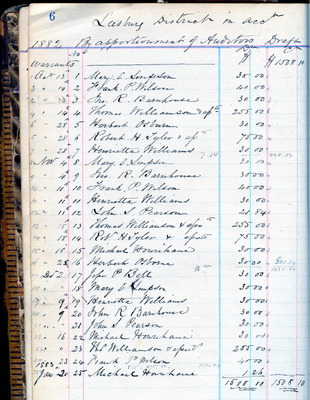 6
Leesburg District in acct
1882 By apportionment of Auditors Draft
Dr Cr
Warrants No $ $ 1508 10
Oct 13 1 Mary E Simpson 30 00
" 14 2 Frank P. Wilson 40 00
3 Jno. R. Barnhouse 30 00
" 14 4 Thomas Williamson & 255 00
" 28 5 Herbert Osburn 30 00
" 28 6 Robert H Tyler & 75 00
" 28 7 Henrietta Williams 30 00
Nov 4 8 Mary E Simpson 30 00
" 4 9 Jno. R. Barnhouse 30 00
" 11 10 Frank P. Wilson 40 00
" 11 11 Henrietta Williams 30 00
" 11 12 John S Pearson
" 18 13 Thomas Williamson & 255 00
" 18 14 Robt H Tyler & 75 00
15 Michael Hourihane 30 00
" 25 16 Herbert Osborne 30 00
Dec 2 17 John P Bell 30 00
18 Mary E Simpson 30 00
" 9 19 Henrietta Williams 30 00
20 John R Barnhouse 30 00
21 John S Pearson 30 00
" 16 22 Michael Hourihane 30 00
" 23 Williamson & 255 00
1883 23 24 Frank P Wilson 40 00
Jan 20 25 Michael Hourihane 1 26
1508 10 1508 10